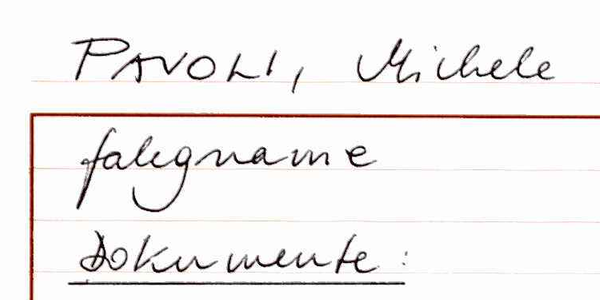 PAVOLI, Michele
falegname
Dokumente: